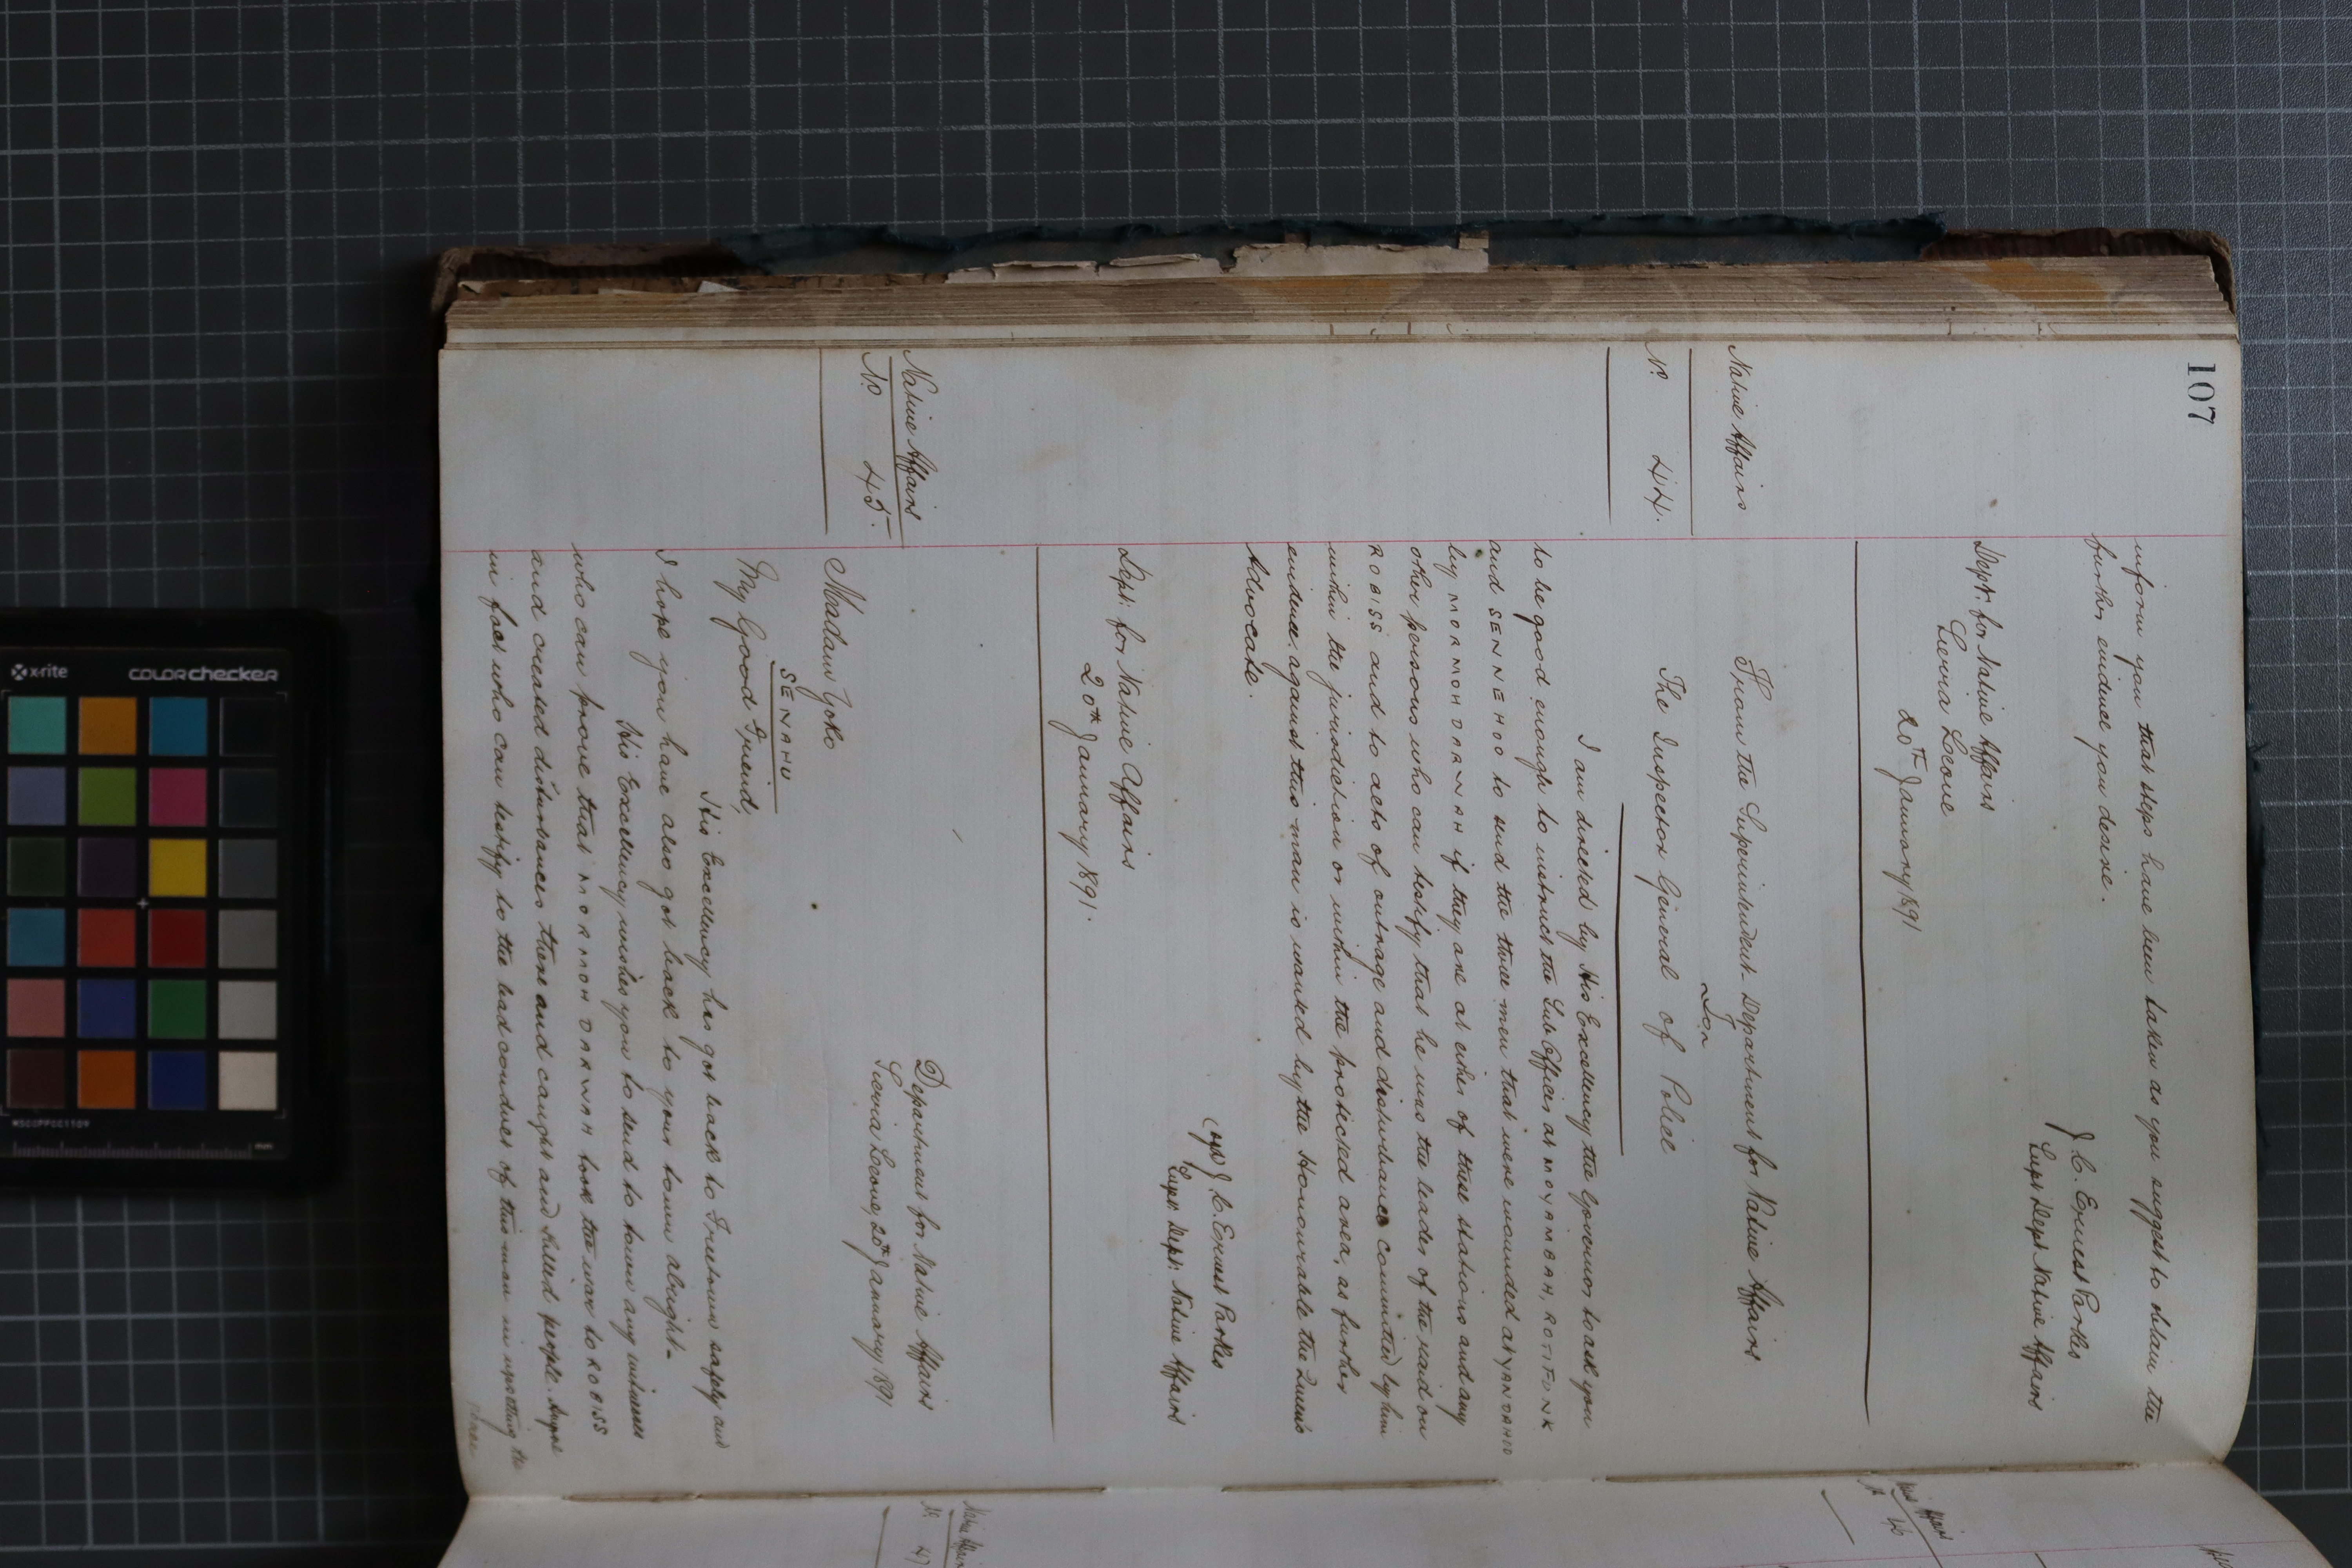 107
inform you that steps have been taken as you suggest to obtain the
further evidence you desire.
J. C. Ernest Parkes
Supt Dept Native Affairs
Dept: for Native Affairs
Sierra Leone
20th January 1891
Native Affairs
No 44.
From the Superintendent Department for Native Affairs
To
The Inspector General of Police
I am directed by His Excellency the Governor to ask you
to be good enough to instruct the Sub Officers at MOYAMBAH, ROTIFUNK
and SENNEHOO to send the three men that were wounded at YANDAHOO
by MORMOH DARWAH if they are at either of these stations and any
other persons who can testify that he was the leader of the raid on
ROBISS and to acts of outrage and disturbance committed by him
within the jurisdiction or within the protected area, as further
evidence against this man is wanted by the Honourable the Queen's
Advocate.
(sgd) J. C. Ernest Parkes
Supt. Dept: Native Affairs
Dept: for Native Affairs
20th January 1891.
Native Affairs
No 45.
Department for Native Affairs
Sierra Leone, 20th January 1891
Madam Yoko
SENAHU
My Good Friend,
His Excellency has got back to Freetown safely and
I hope you have also got back to your town alright-
His Excellency wishes you to send to town any witnesses
who can prove that MORMOH DARWAH took the war to ROBISS
and created disturbances there and caught and killed people. Anyone
in fact who can testify to the bad conduct of this man in upsetting the
Native Affairs
No 46
Native Affairs
No 47
x-rite
colorchecker
MSCCPPCC1109
mm